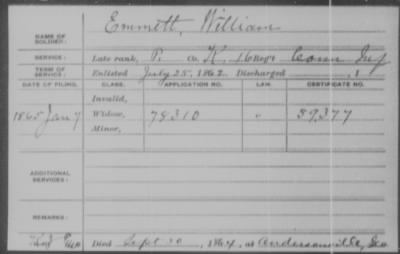 Emmett, William
NAME OF SOLDIER:
SERVICE: Late rank, P. Co. K, 16 Reg't Conn Inf
TERM OF SERVICE: Enlisted July 25, 1862. Discharged , 1
DATE OF FILING. CLASS. APPLICATION NO. LAW. CERTIFICATE NO.
Invalid,
1865 Jan 7 Widow, 78310 " 59,377
Minor,
ADDITIONAL SERVICES:
REMARKS:
Died Sept 20, 1864, at Andersonville, Ga